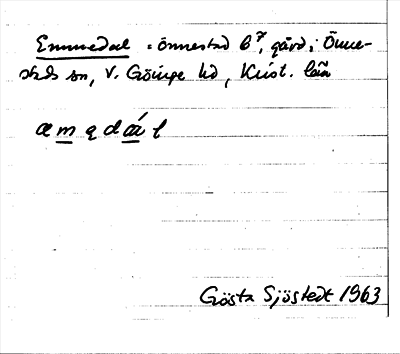 Emmedal = Önnestad 6⁷, gård, i Önne-
stads sn, V. Göinge hd, Krist. län
æ m ə d á l
Gösta Sjöstedt 1963